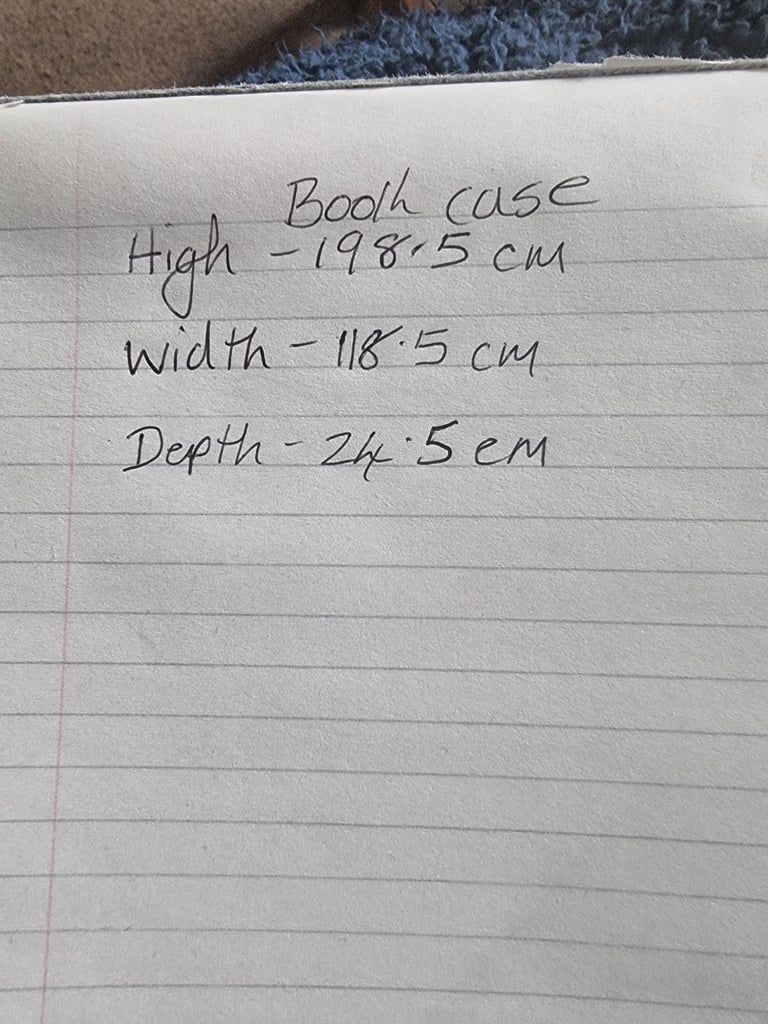 Book case
High - 198.5 cm
Width - 118.5 cm
Depth - 24.5 cm